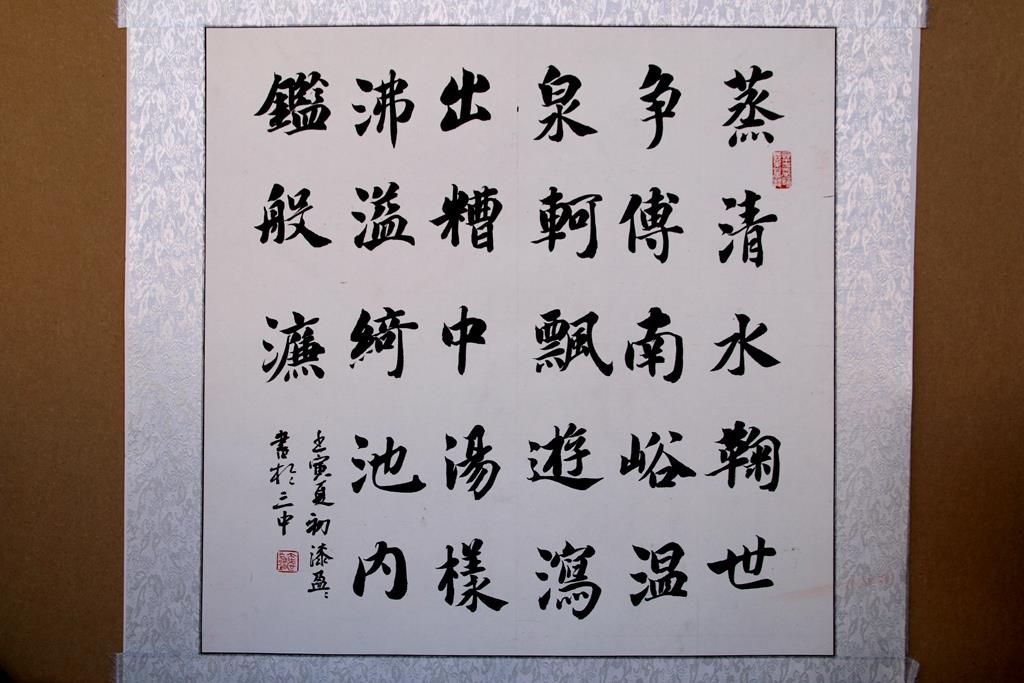 蒸清水鞠世
争傅南峪温
泉軻飄遊瀉
出糟中湯樣
沸溢綺池内
鑑般濂
壬寅夏初漆盈〻
書於三中